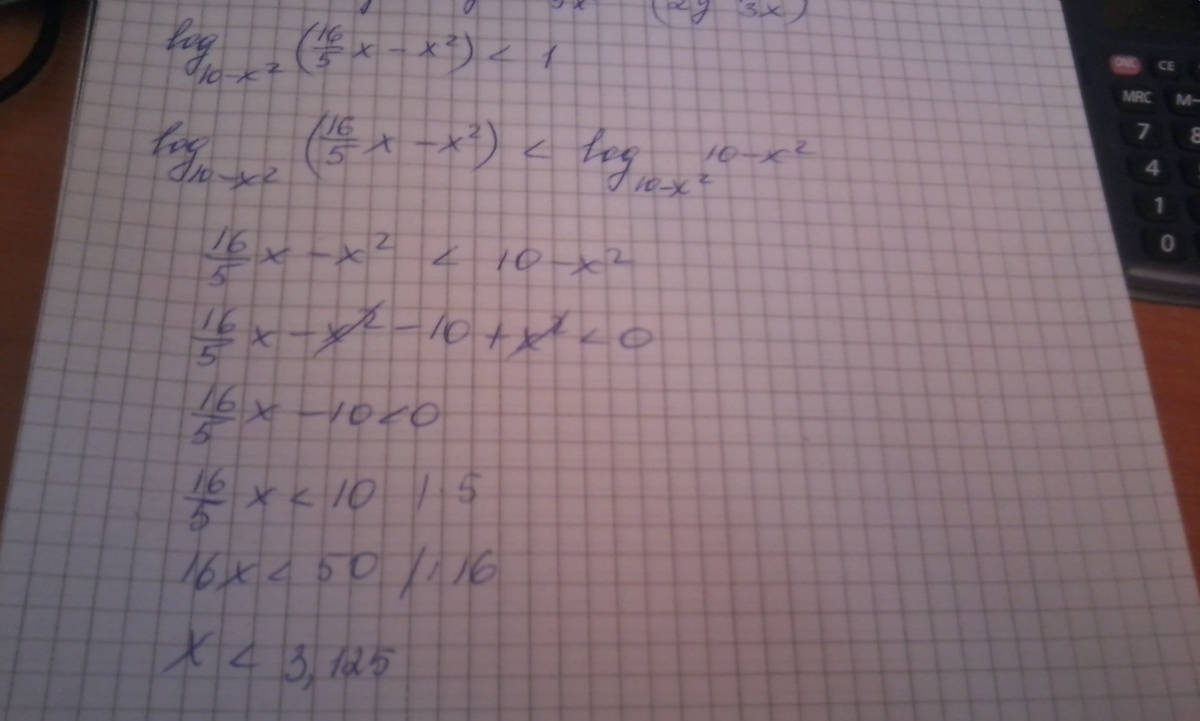 (2y 3x)
log₁₀₋ₓ² (16/5 x - x²) < 1
log₁₀₋ₓ² (16/5 x - x²) < log₁₀₋ₓ² 10-x²
16/5 x - x² < 10 - x²
16/5 x - x² - 10 + x² < 0
16/5 x - 10 < 0
16/5 x < 10 | 5
16x < 50 /: 16
x < 3,125
CE
MRC M-
7 8
4
1
0